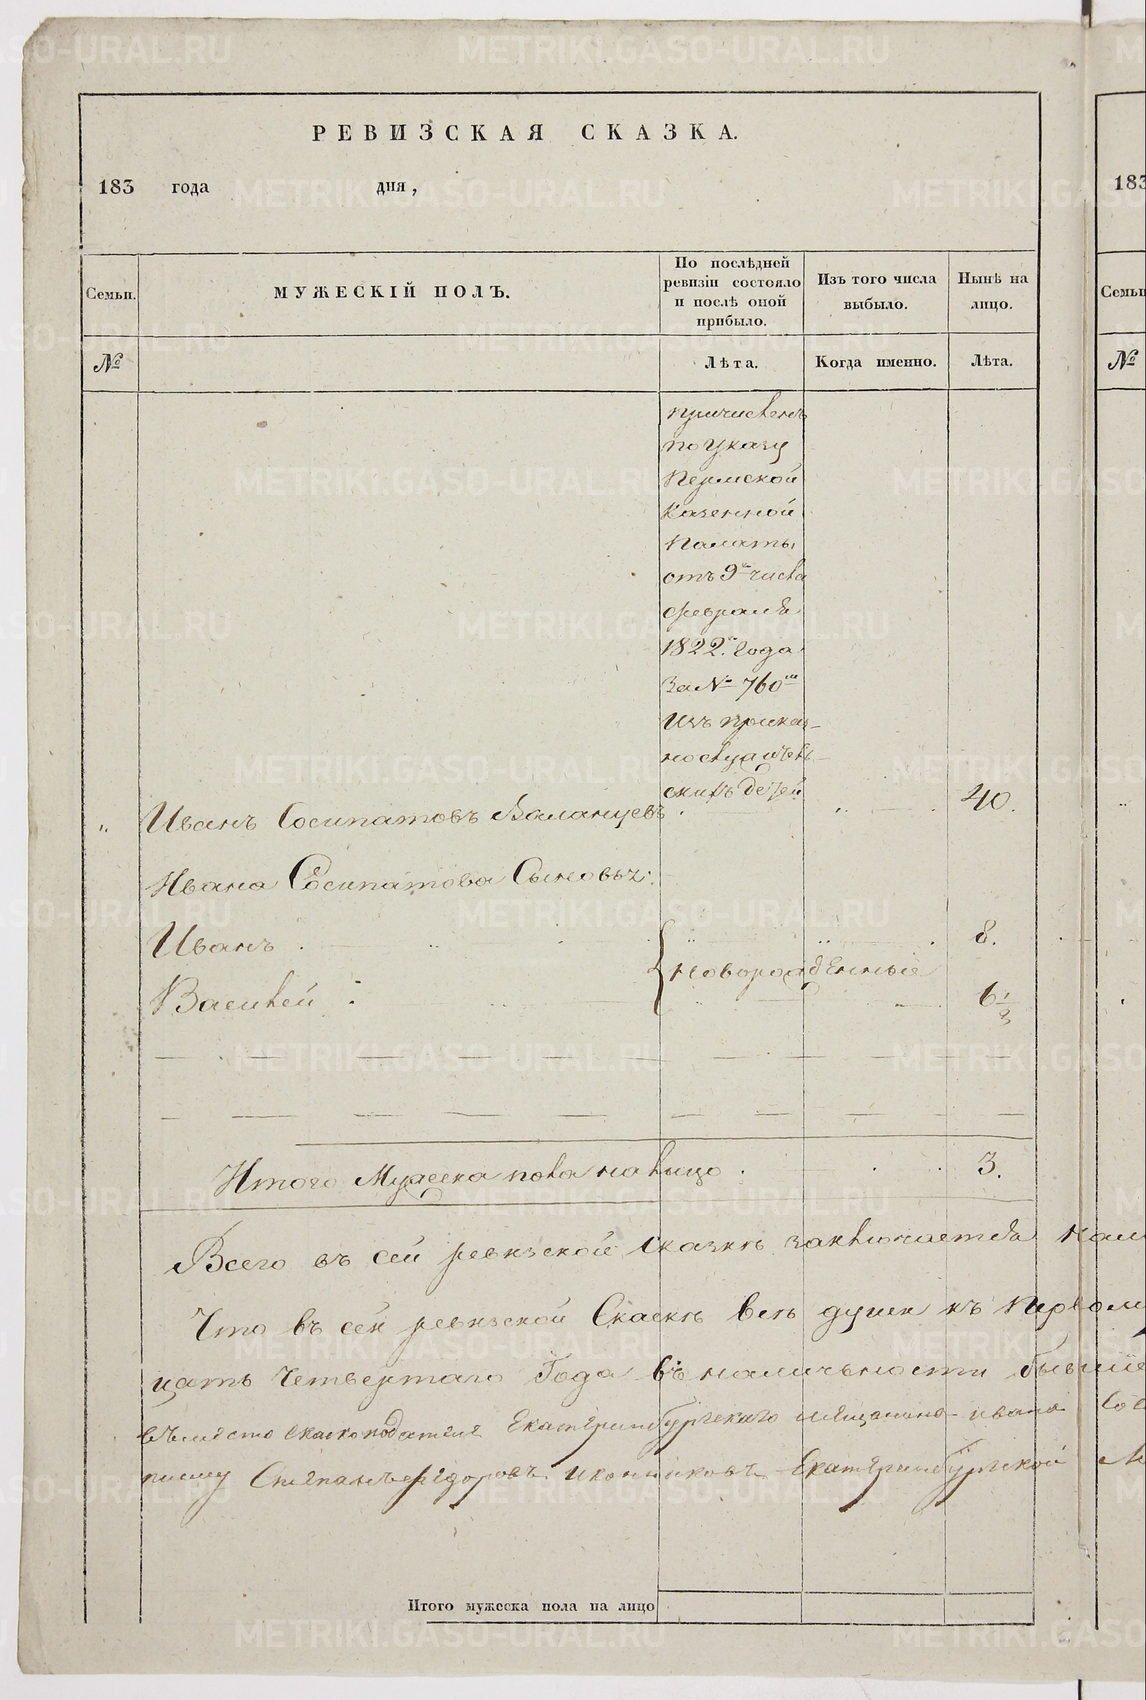 РЕВИЗСКАЯ СКАЗКА.
183 года дня,
Семьи.
МУЖЕСКІЙ ПОЛЪ.
По послѣдней ревизіи состояло и послѣ оной прибыло.
Изъ того числа выбыло.
Нынѣ на лицо.
№
Лѣта.
Когда именно.
Лѣта.
причисленъ
по указу
Пермской
Казенной
Палаты
отъ 9го числа
февраля
1822го года
за № 760м
Изъ приказ-
нослужитель-
скихъ детей
„ Иванъ Сосипатовъ Валанцевъ „ 40.
Ивана Сосипатова Сыновья:
Иванъ 8.
новорожденные
Василей 6 1/2
Итого Мужеска пола налицо 3.
Всего въ сей ревизской сказкѣ заключается
Что въ сей ревизской Скаскѣ всѣ души къ Первом
цать Четвертаго Года въ наличьности бывшіе
въместо скаскоподателя Екатеринбургскаго мещанина ивана
Степанъ федоровъ иконниковъ Екатеринбургской
Итого мужеска пола на лицо
183
Семьи
№
METRIKI.GASO-URAL.RU